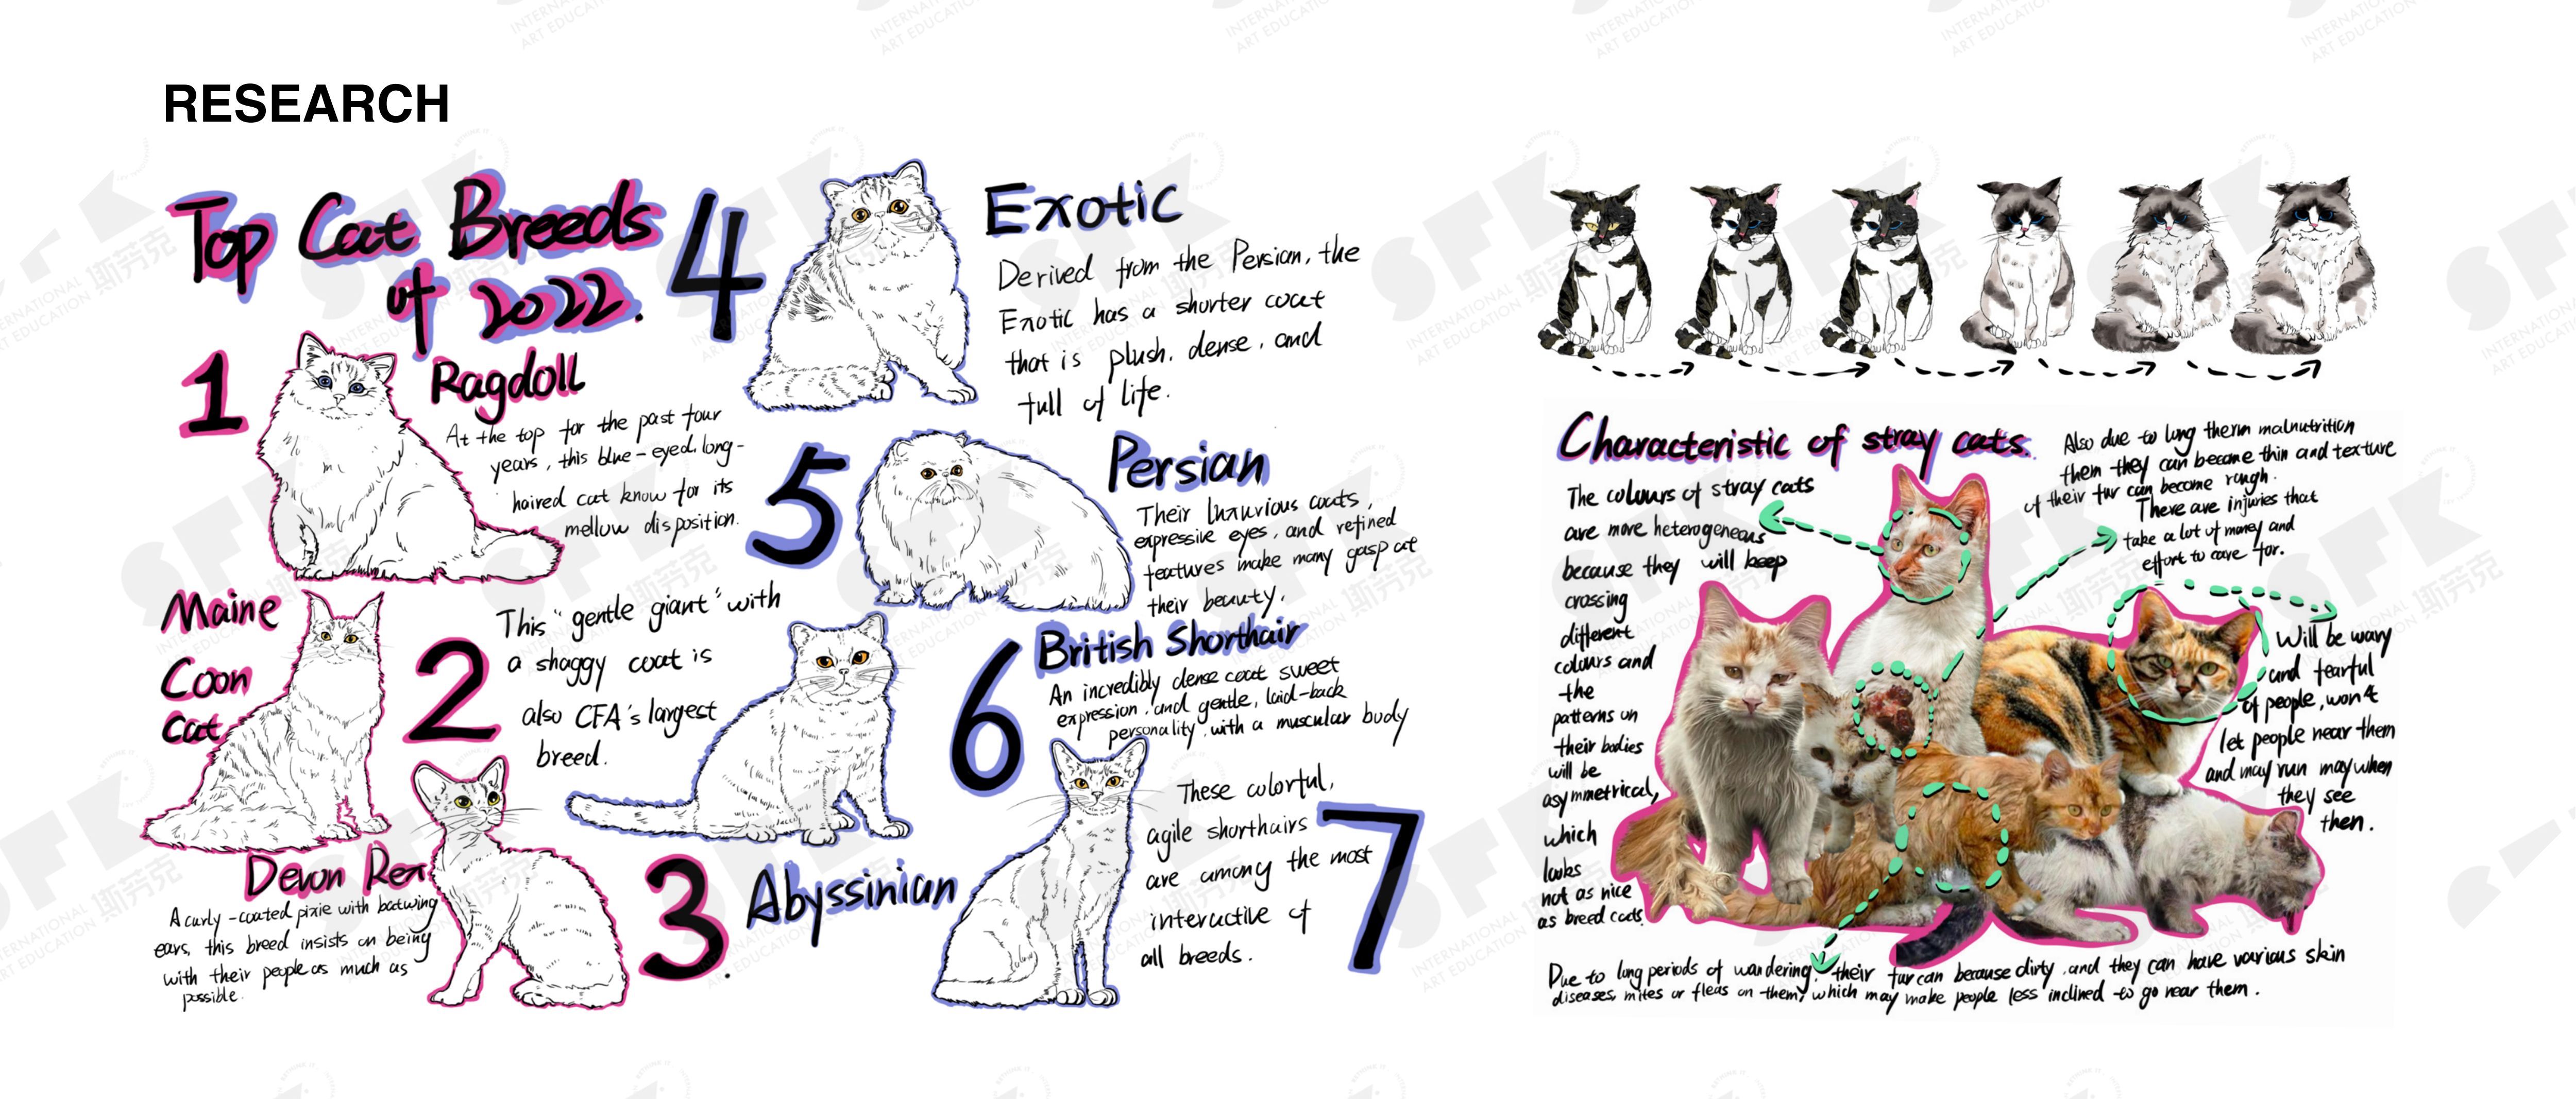 RESEARCH
Top Cat Breeds
of 2022.
1
Ragdoll
At the top for the past four
years, this blue-eyed, long-
haired cat know for its
mellow disposition.
Maine
Coon
Cat
2
This "gentle giant" with
a shaggy coat is
also CFA's largest
breed.
Devon Rex
3
A curly-coated pixie with batwing
ears, this breed insists on being
with their people as much as
possible.
4
Exotic
Derived from the Persian, the
Exotic has a shorter coat
that is plush, dense, and
full of life.
5
Persian
Their luxurious coats,
expressive eyes, and refined
features make many gasp at
their beauty.
6
British Shorthair
An incredibly dense coat sweet
expression, and gentle, laid-back
personality with a muscular body
Abyssinian
7
These colorful,
agile shorthairs
are among the most
interactive of
all breeds.
Characteristic of stray cats.
The colours of stray cats
are more heterogeneous
because they will keep
crossing
different
colours and
the
patterns on
their bodies
will be
asymmetrical,
which
looks
not as nice
as breed cats.
Also due to long therm malnutrition
them they can become thin and texture
of their fur can become rough.
There are injuries that
take a lot of money and
effort to care for.
Will be wary
and fearful
of people, won't
let people near them
and may run may when
they see
then.
Due to long periods of wandering, their fur can because dirty, and they can have various skin
diseases, mites or fleas on them, which may make people less inclined to go near them.
SFK
斯芬克
INTERNATIONAL
ART EDUCATION